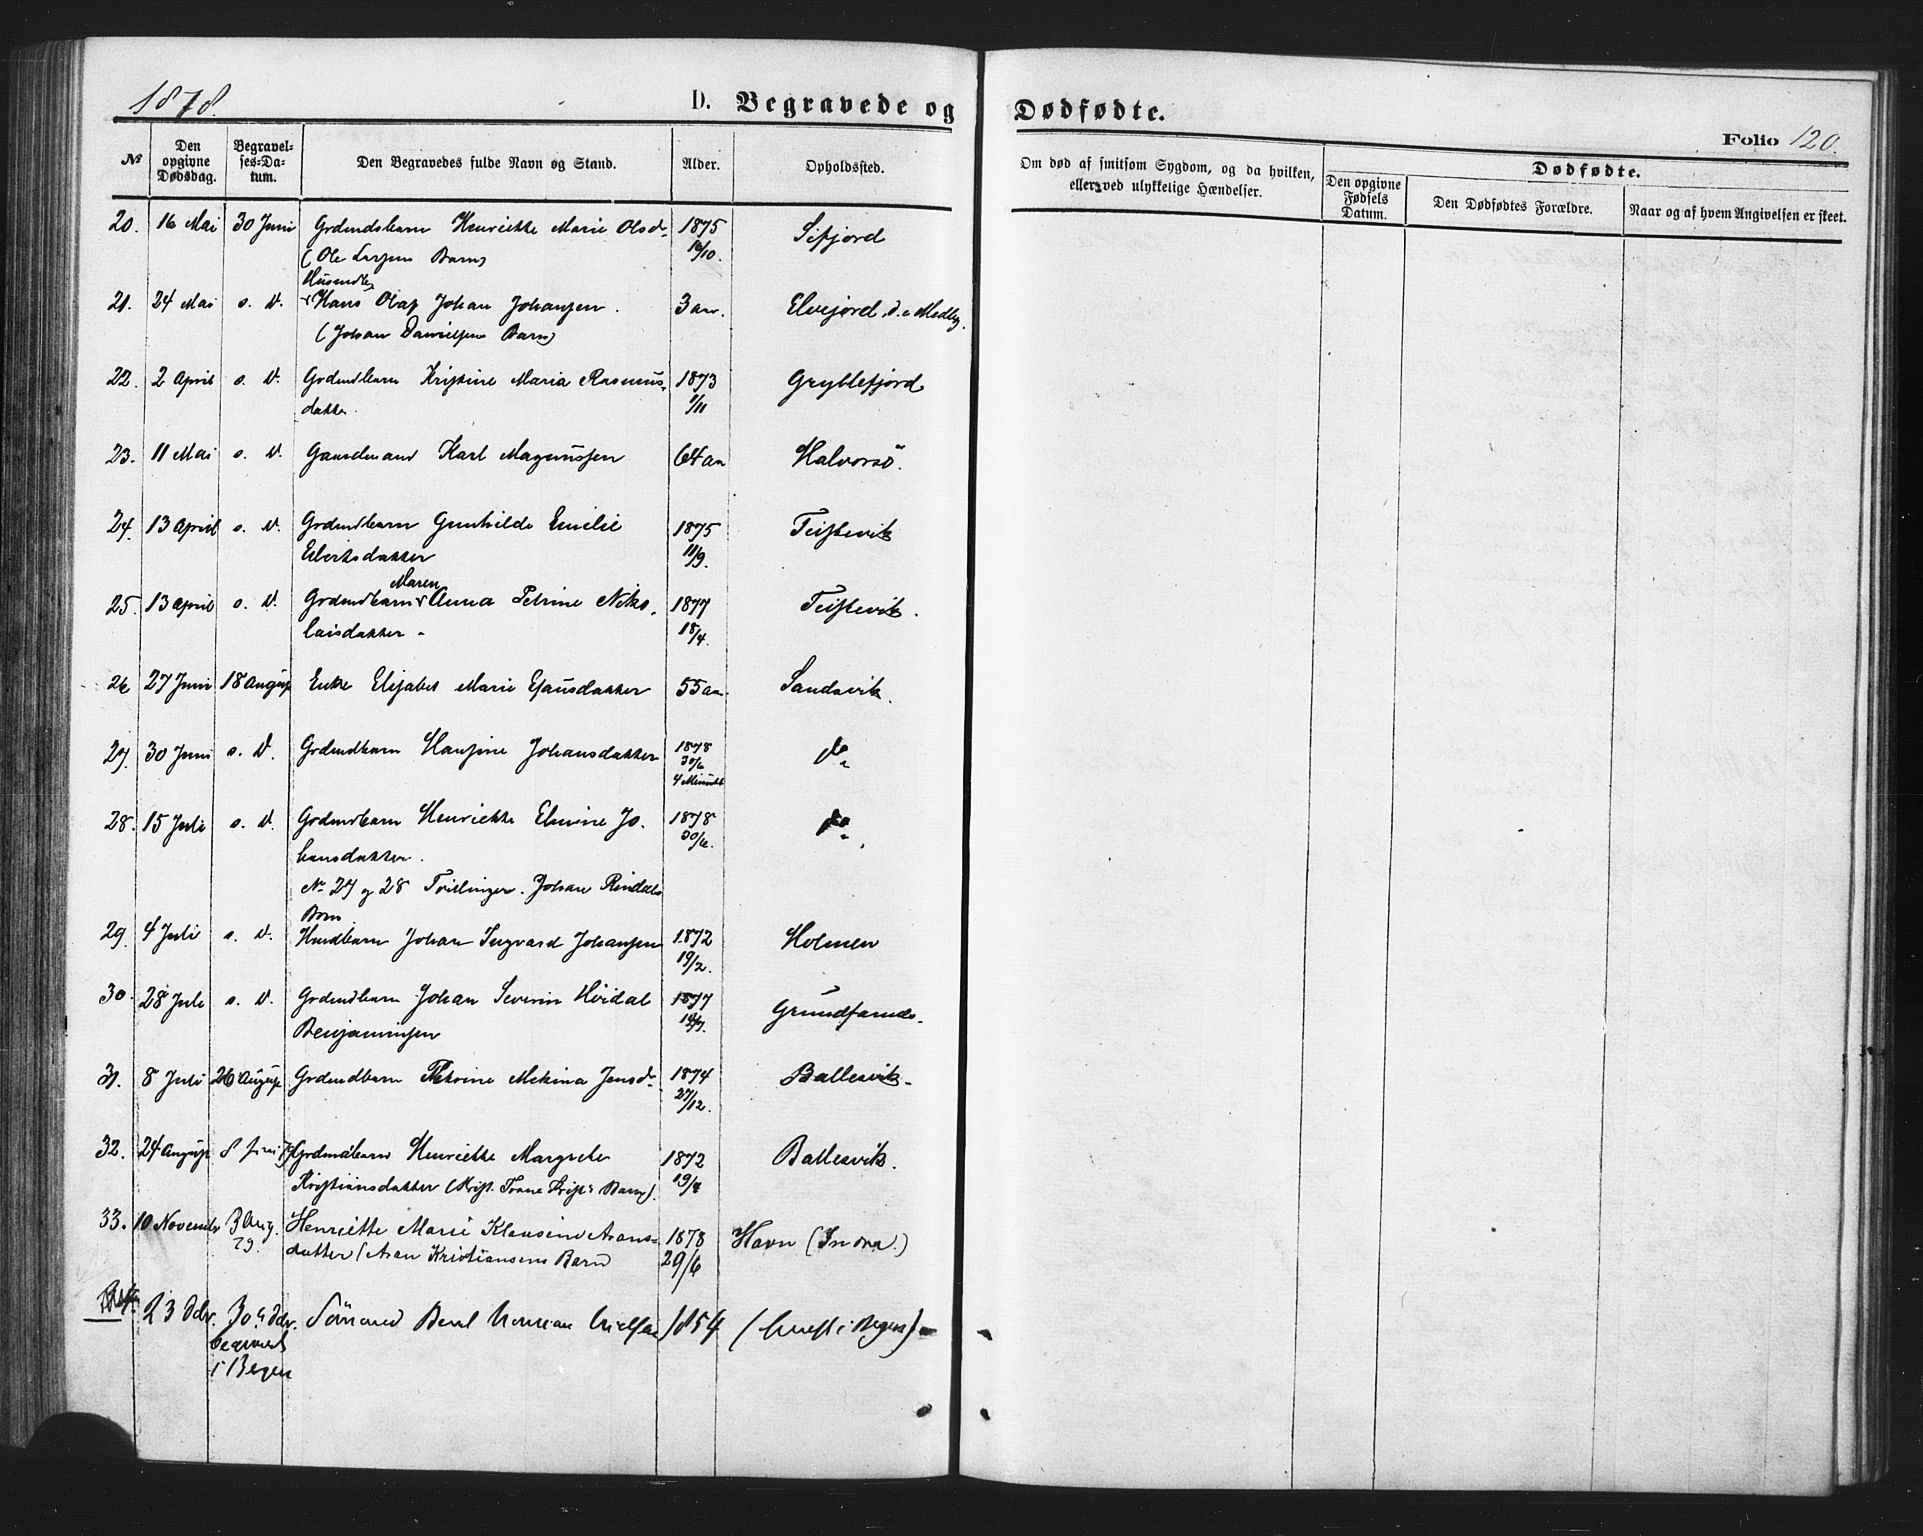 1878.
D. Begravede og Dødfødte.
Folio 120.
№
Den opgivne Dødsdag.
Begravelses-Datum.
Den Begravedes fulde Navn og Stand.
Alder.
Opholdssted.
Om død af smitsom Sygdom, og da hvilken,
eller ved ulykkelige Hændelser.
Dødfødte.
Den opgivne Fødsels Datum.
Den Dødfødtes Forældre.
Naar og af hvem Angivelsen er skeet.
20. 16 Mai 30 Juni Grdmdsbarn Henriette Marie Olsd. 1875 Sifjord
(Ole Larsens Barn) 16/10.
Husmdb.
21. 24 Mai s. D. Hans Olaf Johan Johansen. 3 aar. Elvejord, d. Medby.
(Johan Danielsens Barn)
22. 2 April s. D. Grdmdbarn Kristine Maria Rasmus- 1873 Gryllefjord
datter. 1/11
23. 11 Mai s. D. Gaardmand Karl Magnussen 64 aar Halvorsö.
24. 13 April s. D. Grdmdbarn Gunhilde Emilie 1875 Teistevik
Edvertsdatter 11/9.
Maren
25. 13 April s. D. Grdmdbarn Anna Petrine Niko- 1877 Teistevik.
laisdatter 18/4.
26 27 Juni 18 August Enke Elisabet Marie Esausdatter 55 aar. Sandsvik.
27. 30 Juni s. D. Grdmdbarn Hansine Johansdatter 1878 do
30/6
4 Minutter
28. 15 Juli s. D. Grdmdbarn Henriette Elvine Jo- 1878 do
hansdatter. 30/6.
No 27 og 28 Tvillinger. Johan Rindals
Børn
29. 4 Juli s. D. Husmdbarn Johan Ingvard Johansen 1872 Holmen
19/2.
30. 28 Juli s. D. Grdmdbarn Johan Severin Höidal 1877 Grundfarnes.
Benjaminsen
31. 8 Juli 26 August Grdmdbarn Petrine Mekina Jensd. 1874 Ballesvik.
27/12.
32. 24 August 8 Juni Grdmdbarn Henriette Margrete 1872 Ballesvik.
Kristiansdatter (Krist. Trane Barn). 19/4
33. 10 Novembr 3 Aug. Henriette Marie Klausine Arons- 1878 Havn (Indra.)
79. datter (Aron Kristiansens Barn 29/6
34. 23 Debr. 30 Debr. Sömand 1854 (i Bergen)
begravet
i Bergen